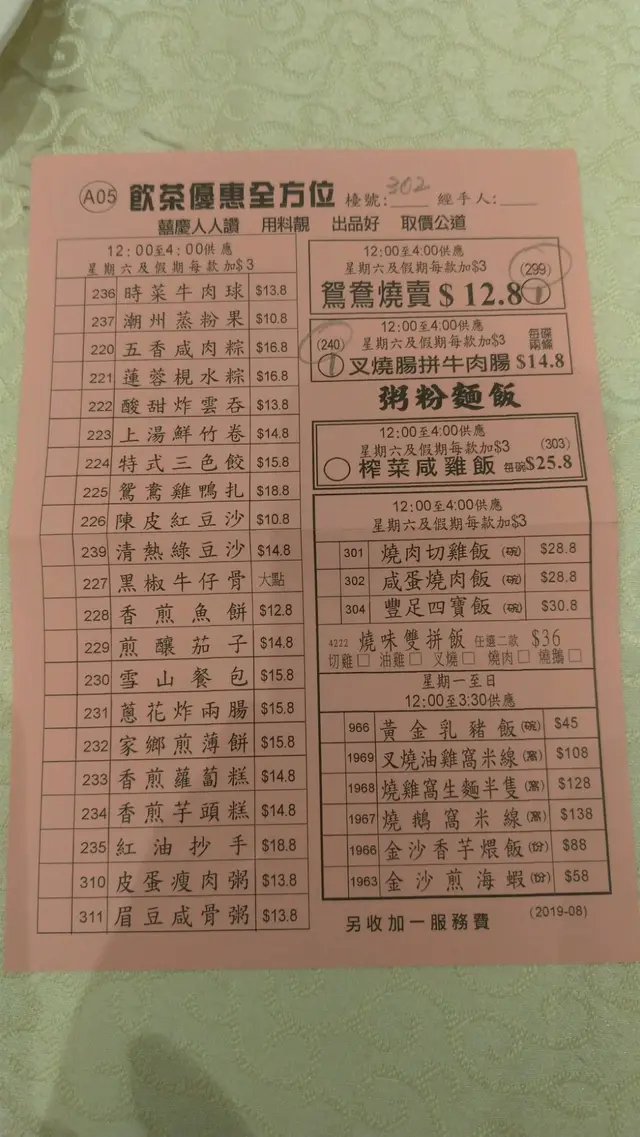 A05 飲茶優惠全方位 檯號:302 經手人:
囍慶人人讚 用料靚 出品好 取價公道
12:00至4:00供應
星期六及假期每款加$3
236 時菜牛肉球 $13.8
237 潮州蒸粉果 $10.8
220 五香咸肉粽 $16.8
221 蓮蓉梘水粽 $16.8
222 酸甜炸雲吞 $13.8
223 上湯鮮竹卷 $14.8
224 特式三色餃 $15.8
225 鴛鴦雞鴨扎 $18.8
226 陳皮紅豆沙 $10.8
239 清熱綠豆沙 $14.8
227 黑椒牛仔骨 大點
228 香煎魚餅 $12.8
229 煎釀茄子 $14.8
230 雪山餐包 $15.8
231 蔥花炸兩腸 $15.8
232 家鄉煎薄餅 $15.8
233 香煎蘿蔔糕 $14.8
234 香煎芋頭糕 $14.8
235 紅油抄手 $18.8
310 皮蛋瘦肉粥 $13.8
311 眉豆咸骨粥 $13.8
12:00至4:00供應
星期六及假期每款加$3 (299)
鴛鴦燒賣 $12.8 1
12:00至4:00供應
(240) 星期六及假期每款加$3 每碟兩條
1 叉燒腸拼牛肉腸 $14.8
粥粉麵飯
12:00至4:00供應
星期六及假期每款加$3 (303)
榨菜咸雞飯 每碗$25.8
12:00至4:00供應
星期六及假期每款加$3
301 燒肉切雞飯(碗) $28.8
302 咸蛋燒肉飯(碗) $28.8
304 豐足四寶飯(碗) $30.8
4222 燒味雙拼飯 任選二款 $36
切雞□ 油雞□ 叉燒□ 燒肉□ 燒鵝□
星期一至日
12:00至3:30供應
966 黃金乳豬飯(碗) $45
1969 叉燒油雞窩米線(窩) $108
1968 燒雞窩生麵半隻(窩) $128
1967 燒鵝窩米線(窩) $138
1966 金沙香芋煨飯(份) $88
1963 金沙煎海蝦(份) $58
另收加一服務費 (2019-08)